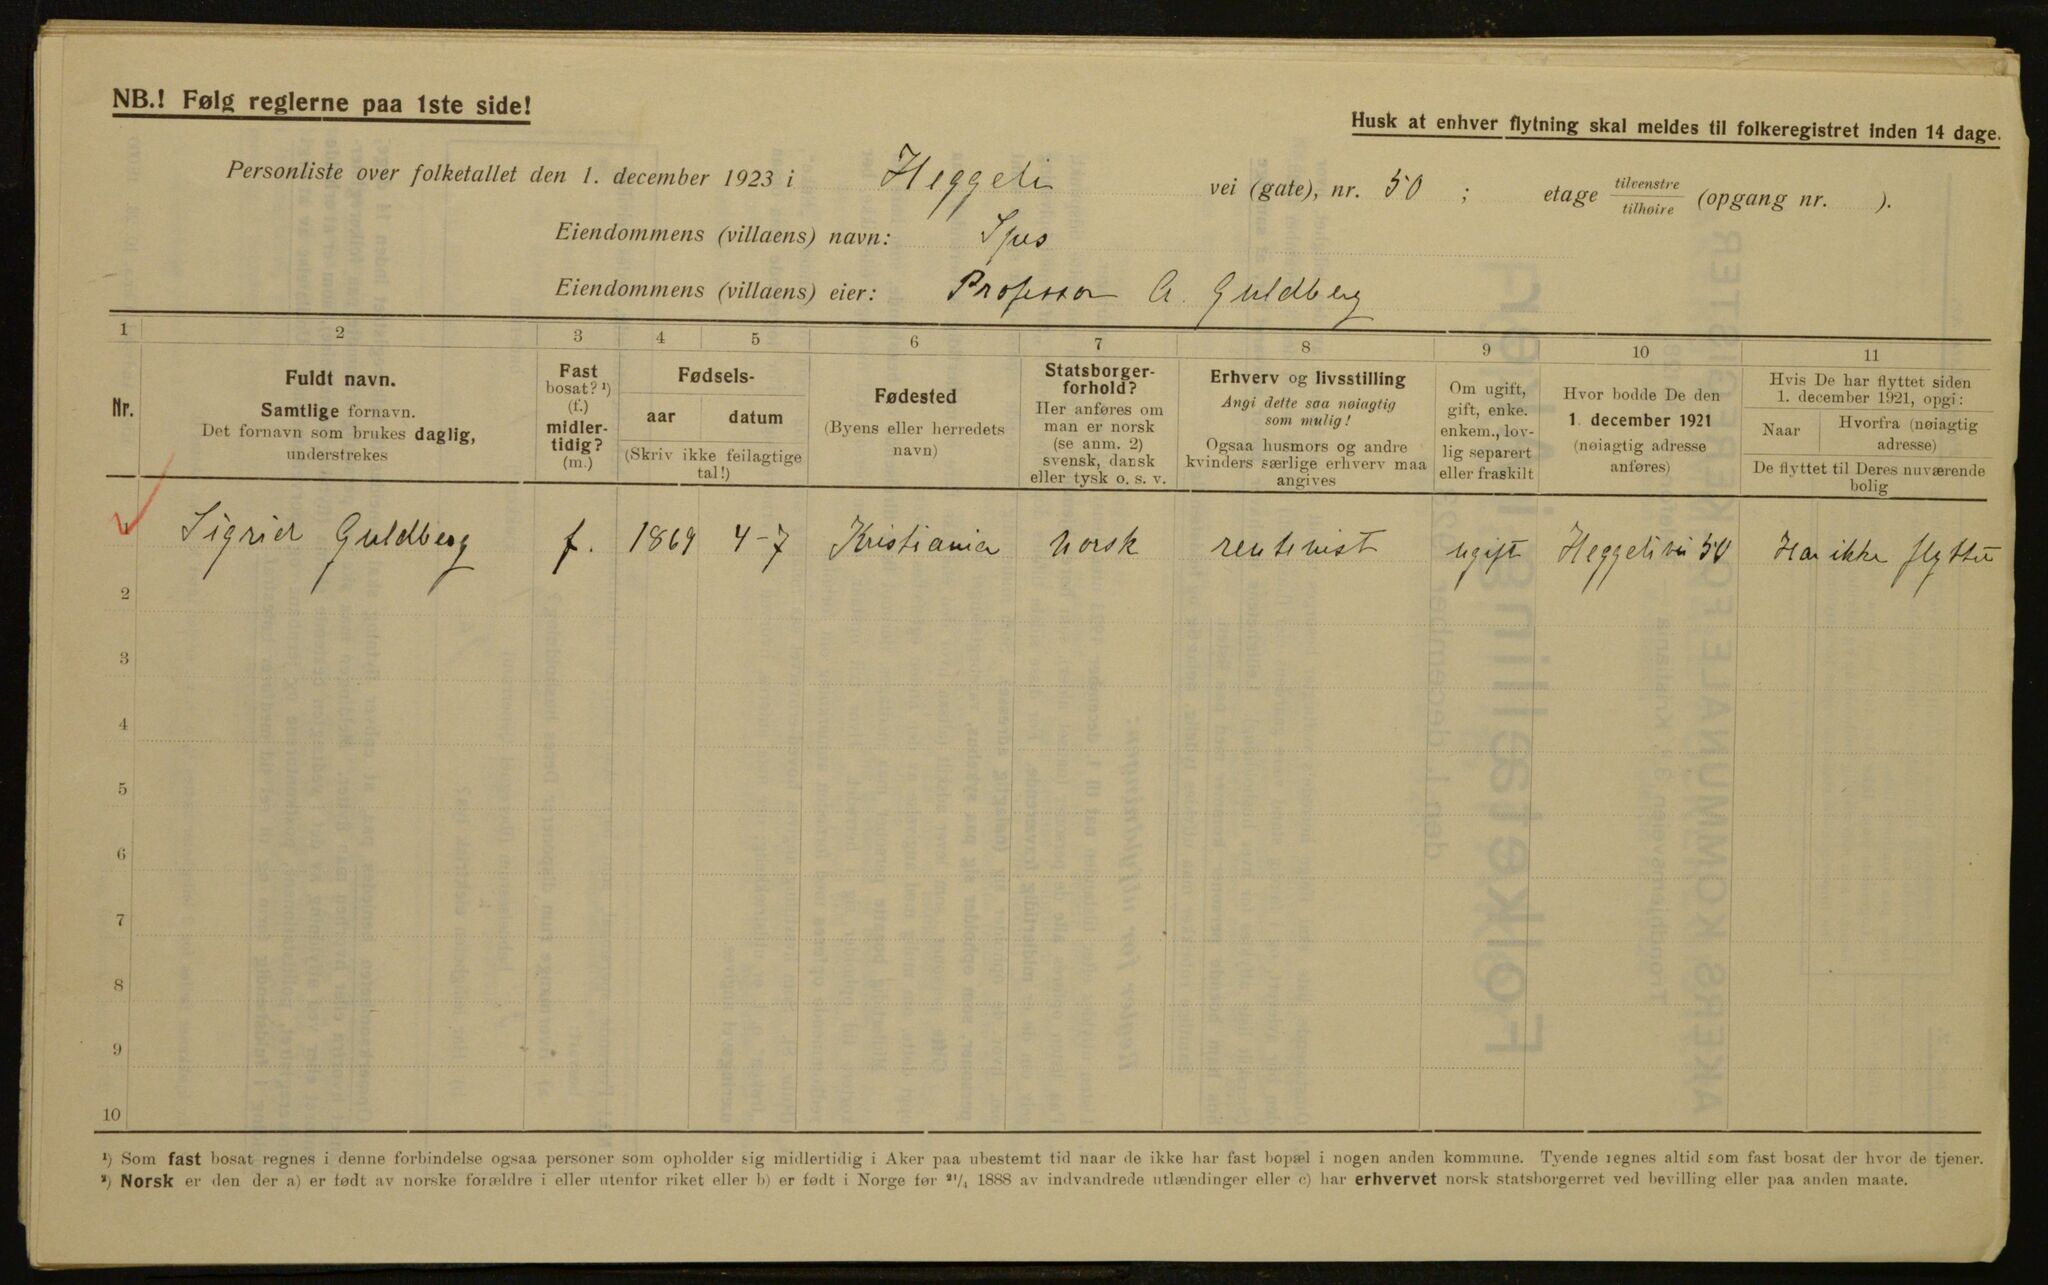 NB.! Følg reglerne paa 1ste side!
Husk at enhver flytning skal meldes til folkeregistret inden 14 dage.
Personliste over folketallet den 1. december 1923 i Heggeli vei (gate), nr. 50 ; etage tilvenstre/tilhøire (opgang nr. ).
Eiendommens (villaens) navn: Spes
Eiendommens (villaens) eier: Professor A. Guldberg
1 2 3 4 5 6 7 8 9 10 11
Nr.
Fuldt navn.
Samtlige fornavn.
Det fornavn som brukes daglig,
understrekes
Fast
bosat? ¹)
(f.)
midler-
tidig?
(m.)
Fødsels-
aar datum
(Skriv ikke feilagtige
tal!)
Fødested
(Byens eller herredets
navn)
Statsborger-
forhold?
Her anføres om
man er norsk
(se anm. 2)
svensk, dansk
eller tysk o. s. v.
Erhverv og livsstilling
Angi dette saa nøiagtig
som mulig!
Ogsaa husmors og andre
kvinders særlige erhverv maa
angives
Om ugift,
gift, enke.
enkem., lov-
lig separert
eller fraskilt
Hvor bodde De den
1. december 1921
(nøiagtig adresse
anføres)
Hvis De har flyttet siden
1. december 1921, opgi:
Naar
Hvorfra (nøiagtig
adresse)
De flyttet til Deres nuværende
bolig
1 Sigrid Guldberg f. 1869 4-7 Kristiania norsk rentenist ugift Heggelivei 50 Har ikke flyttet
2
3
4
5
6
7
8
9
10
¹) Som fast bosat regnes i denne forbindelse ogsaa personer som opholder sig midlertidig i Aker paa ubestemt tid naar de ikke har fast bopæl i nogen anden kommune. Tyende regnes altid som fast bosat der hvor de tjener.
²) Norsk er den der a) er født av norske forældre i eller utenfor riket eller b) er født i Norge før ²¹/₄ 1888 av indvandrede utlændinger eller c) har erhvervet norsk statsborgerret ved bevilling eller paa anden maate.